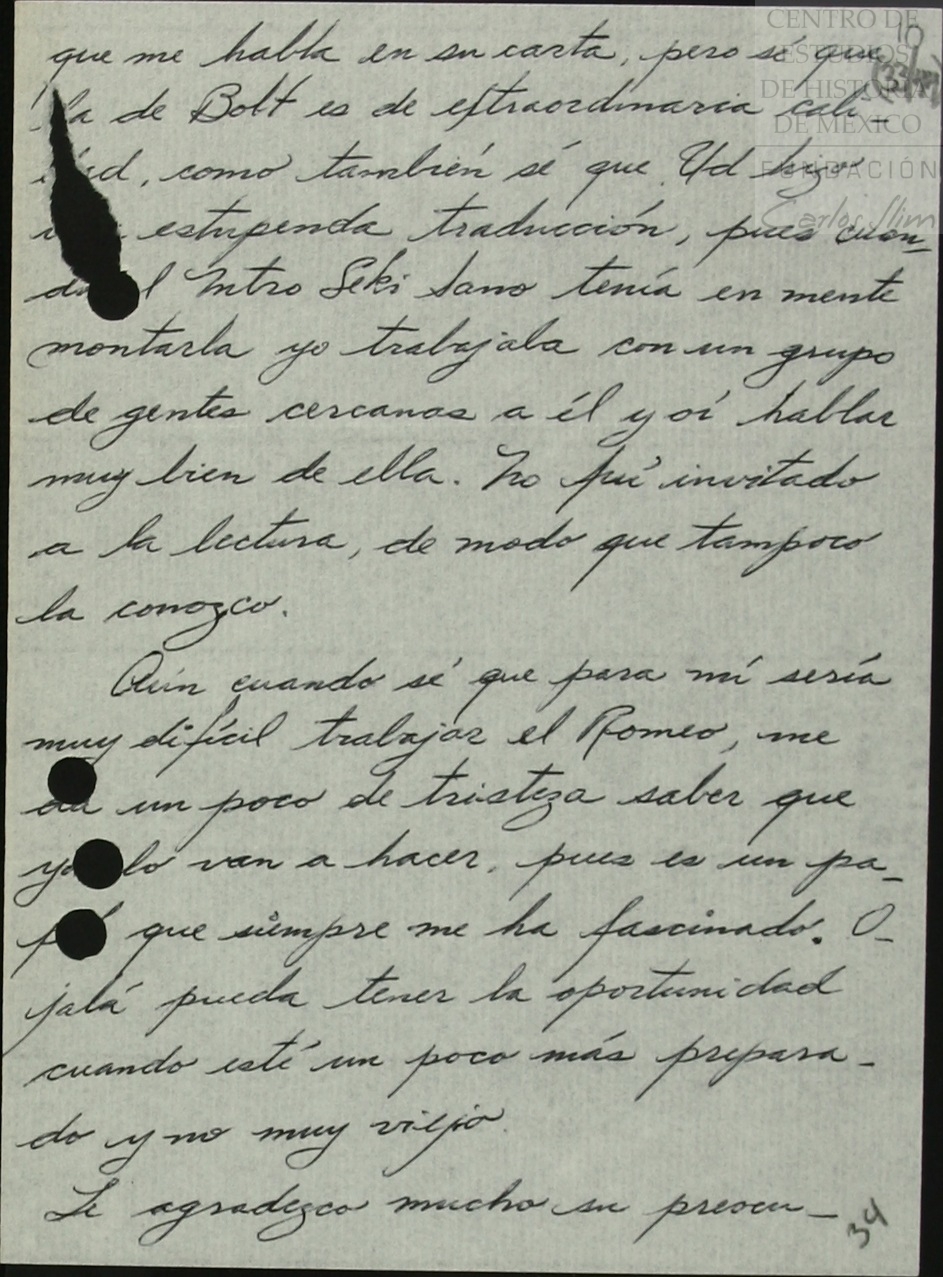 que me habla en su carta, pero sé que
la de Bolt es de extraordinaria cali-
dad, como también sé que Ud hizo
estupenda traducción, pues cuan-
do el Mtro Seki Sano tenía en mente
montarla yo trabajaba con un grupo
de gentes cercanas a él y oí hablar
muy bien de ella. No fuí invitado
a la lectura, de modo que tampoco
la conozco.
Aún cuando sé que para mí sería
muy difícil trabajar el Romeo, me
da un poco de tristeza saber que
ya lo van a hacer, pues es un pa-
pel que siempre me ha fascinado. O-
jalá pueda tener la oportunidad
cuando esté un poco más prepara-
do y no muy viejo.
Le agradezco mucho su preocu-
34
10
CENTRO DE
ESTUDIOS
DE HISTORIA
DE MÉXICO
FUNDACIÓN
Carlos Slim